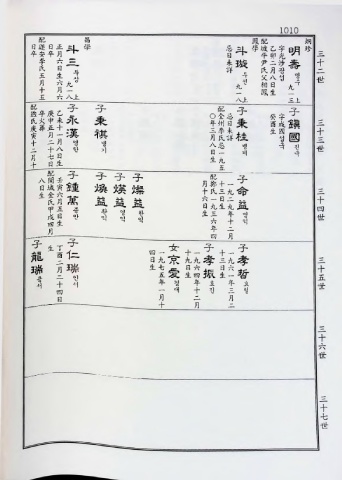 1010
三十二世
炯珍
明壽 명수 九一三上
字允沙 관성
乙卯二月八日生
配坡平尹氏父相鳳
鳳學
斗璇 두선 九一八上
忌日未詳
昌學
斗三 두삼 九一八上
正月六日生六月六日卒
配延安李氏五月十五日卒
三十三世
子鎭國 진국
字成國 성국
癸酉生
子秉桂 병계
忌日未詳
配全州李氏忌一九五〇年三月八日生
子秉祺 병기
子永漢 영한
乙未十一月八日生
庚申正月二十七日卒火葬
配國氏庚寅十二月十
三十四世
子命益 명익
一九二九年十二月十三日生
配鄭氏一九三六年四月十六日生
子燦益 찬익
子煐益 영익
子煥益 환익
子鍾萬 종만
壬寅六月五日生
配開城金氏甲戌四月八日生
三十五世
子孝哲 효철
一九六一年三月二十三日生
子孝振 효진
一九六四年十二月十九日生
女京愛 경애
一九七五年一月十四日生
子仁瑞 인서
丁酉二月二十四日生
子龍瑞 용서
三十六世
三十七世